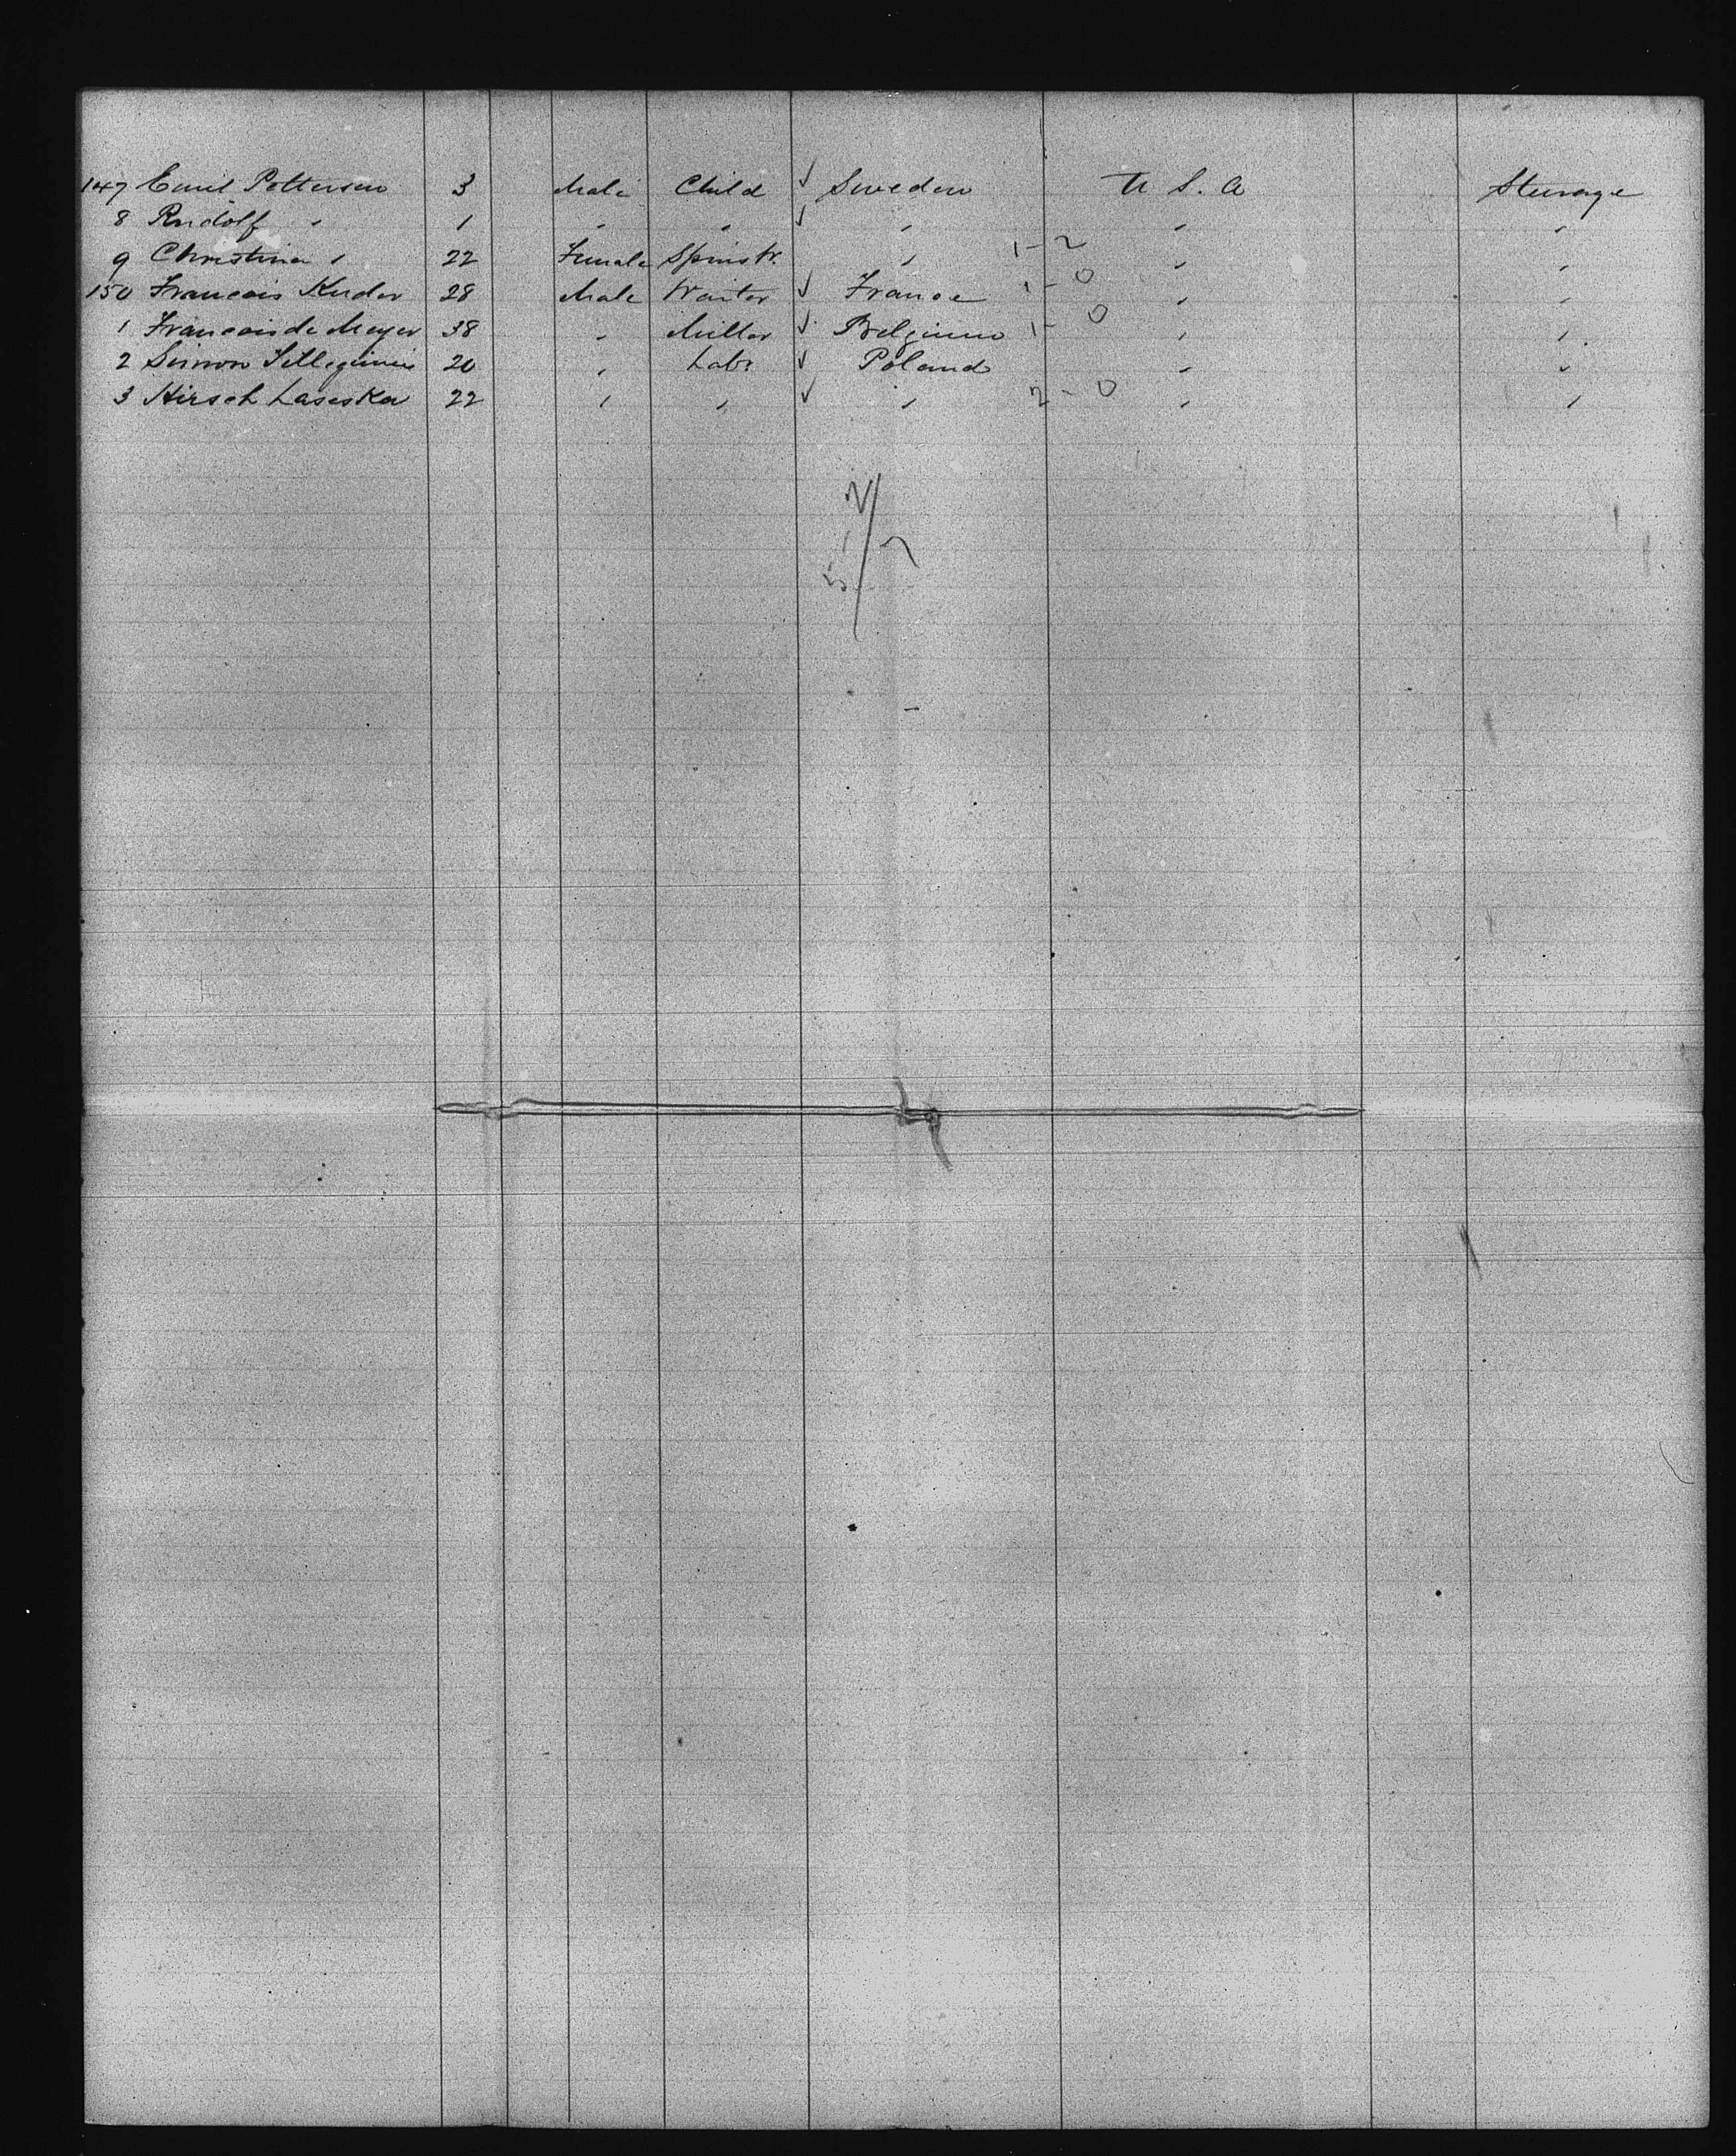 147 Emil Pettersen 3 Male Child ✓ Sweden U. S. A Steerage
8 Rudolf " 1 " " ✓ " " "
9 Christina " 22 Female Spinstr. " 1-2 " "
150 Francois Kuder 28 Male Waiter ✓ France 1-0 " "
1 Francois de Meyer 38 " Miller ✓ Belgium 1-0 " "
2 Simon 20 " Labr ✓ Poland " "
3 Hirsch Laseska 22 " " ✓ " 2-0 " "